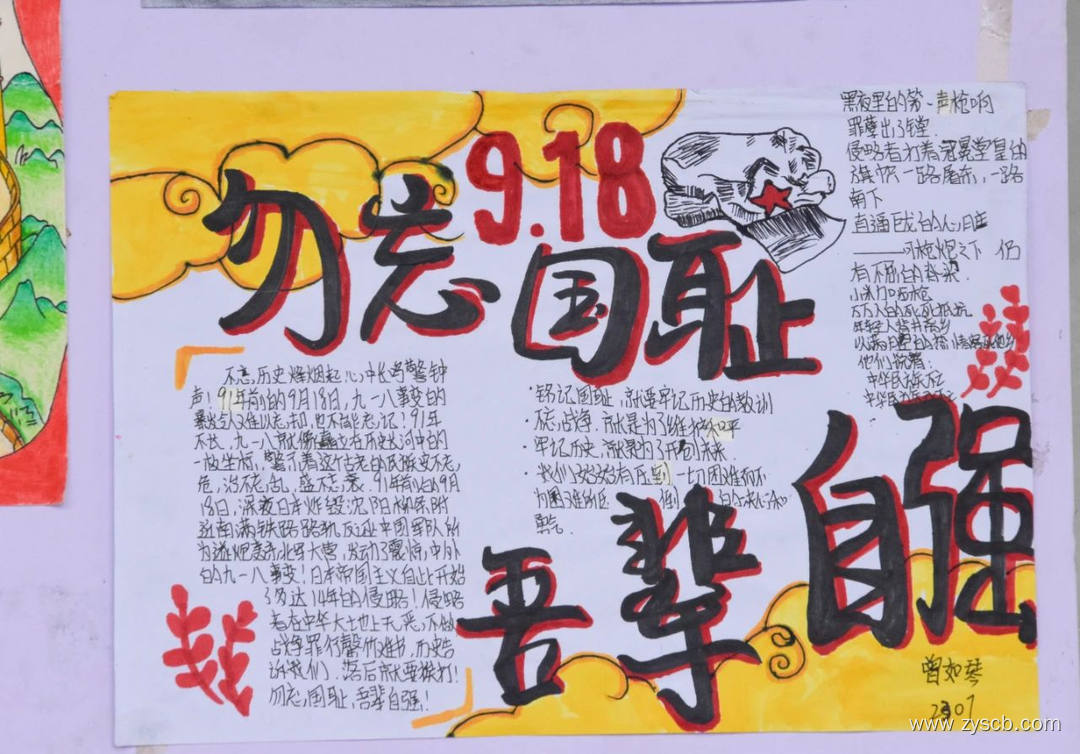 勿忘
9.18
国耻
吾辈
自强
黑夜里的第一声枪响
罪孽出了膛
侵略者打着冠冕堂皇的
旗帜一路屠杀,一路
南下
直逼巨龙的心脏
枪炮之下 仍
有不屈的脊梁
小米加步枪
万万人的死死抵抗
他们说着:
不忘历史烽烟起,心中长鸣警钟
声!91年前的9月18日,九一八事变的
难以忘却,也不能忘记!91年
不长,九一八就像矗立在历史长河中的
一座坐标,警示着这古老的民族安不忘
危,治不忘乱,盛不忘衰。91年前的9月
18日,深夜日本炸毁沈阳柳条附
近南满铁路路轨反诬中国军队所
为遂炮轰北大营,发动了震惊中外
的九一八事变!日本帝国主义自此开始
了多达14年的侵略!侵略
者在中华大地上无恶不做
战争罪行罄竹难书,历史告
诉我们:落后就要挨打!
勿忘国耻,吾辈自强!
·铭记国耻,就要牢记历史的教训
·不忘战争,就是为了维护和平
·牢记历史,就是为了开创未来
·我们始终有压倒一切困难而不
为困难所压倒的决心和
勇气。
曾如琴
2307
www.zyscb.com